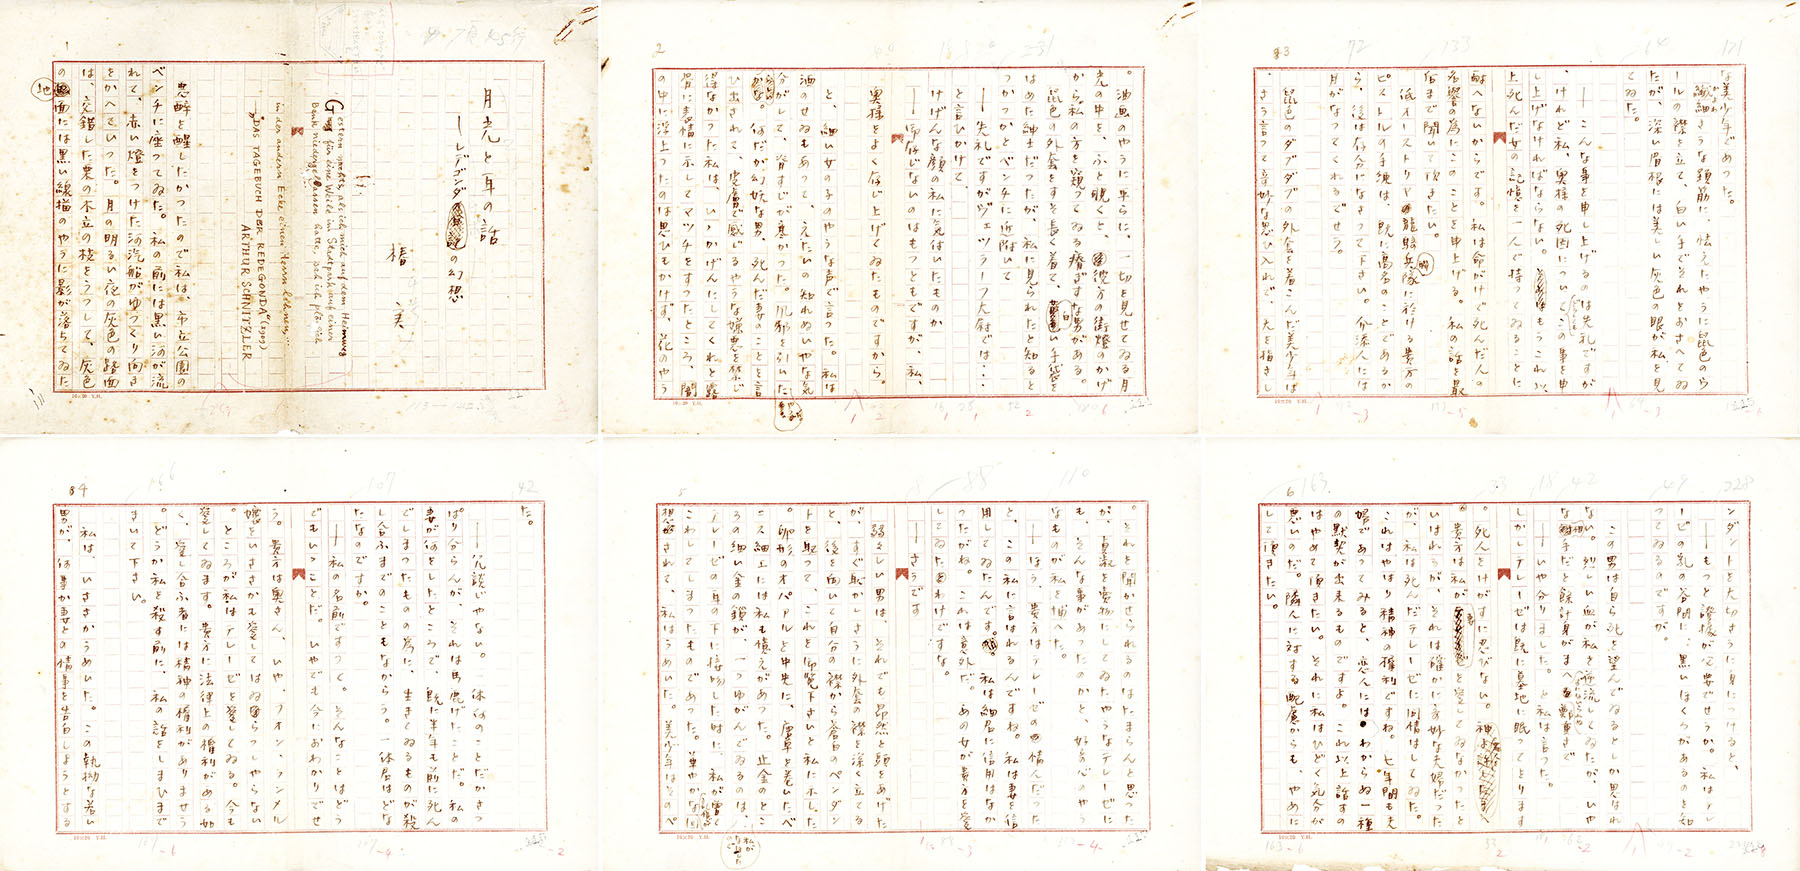 1
月光と耳の話
―レデゴンダの幻想
椿 実
Gestern nachts, als ich mich auf dem Heimweg
für eine Weile im Stadtpark auf einer
Bank niedergelassen hatte, sah ich plötzlich
in der anderen Ecke einen Herrn lehnen,...
„DAS TAGEBUCH DER REDEGONDA" (1909)
ARTHUR SCHNITZLER
悪酔を醒したかつたので私は、市立公園の
ベンチに座つてゐた。私の前には黒い河が流
れて、赤い燈をつけた河汽船がゆつくり向き
をかへていつた。月の明るい夜の灰色の路面
は、交錯した栗の木立の枝をうつして、灰色
の地面には黒い線描のやうに影が落ちてゐた
10×20 Y.H.
2
。油画のやうに平らに、一切を見せてゐる月
光の中を、ふと覗くと、彼方の街燈のかげ
から私の方を窺つてゐる瘠ぎすな男がある。
鼠色の外套をすそ長く着て、白い手袋を
はめた紳士だつたが、私に見られたと知ると
つかつかとベンチに近附いて
――失礼ですがヴェツラーフ大尉では・・・
と言ひかけて、
けげんな顔の私に気付いたものか
――御存じないのはもつともですが、私、
奥様をよく存じ上げてゐたものですから。
と、細い女の子のやうな声で言つた。私は
酒のせゐもあつて、えたいの知れぬいやな気
分がして、背すじが寒かつた。風邪を引いた
かな。何だか幻妖な男、死んだ妻のことを言
ひ出されて、皮膚で感じるやうな嫌悪を禁じ
得なかつた私は、いゝかげんにしてくれと露
骨に表情に示してマツチをすつたところ、闇
の中に浮上つたのは思ひもかけず、花のやう
10×20 Y.H.
3
な美少年であつた。
繊細さうな頸筋に、怯えたやうに鼠色のラ
ールの襟を立て、白い手でそれをおさへてゐ
たが、深い眉根には美しい灰色の眼が私を見
てゐた。
――こんな事を申し上げるのは失礼ですが
、けれど私、奥様の死因についてこの事を申
し上げなければならない。もうこれ以
上死んだ女の記憶を一人で持つてゐることに
耐へないからです。私は命がけで死んだ人の
名誉の為にこのことを申上げる。私の話を最
後まで聞いて頂きたい。
低オーストリヤ龍騎兵隊に於ける貴方の
ピストルの手練は、既に高名のことであるか
ら、後は存分になさつて下さい。介添人には
月がなつてくれるでせう。
鼠色のダブダブの外套を着こんだ美少年は
、さう言つて奇妙な思ひ入れで、天を指さし
10×20 Y.H.
4
た。
――冗談じやない。一体何のことだかさつ
ぱり分らんが、それは馬鹿げたことだ。私の
妻が何をしたところで、既に半年も前に死ん
でしまつたものの為に、生きてゐるものが殺
し合ふまでのこともなからう。一体君はどな
たなのですか。
――私の名前ですつて。そんなことはどう
でもいゝことだ。いやでも今におわかりでせ
う。貴方は奥さん、いや、フオン・ランメル
嬢をいささかも愛してはゐらつしやらない
。ところが私はテレーゼを愛してゐる。今も
愛してゐます。貴方に法律上の権利がある如
く、愛し合ふ者には精神の権利がありませう
。どうか私を殺す前に、私の話をしまひまで
きいて下さい。
私は、いささかうめいた。この執拗な若い
男が、何事か妻との情事を告白しようとする
10×20 Y.H.
5
。それを聞かせられるのはたまらんと思つた
が、貞淑を売物にしてゐたやうなテレーゼに
も、そんな事があつたのかと、好奇心のやう
なものが私を捕へた。
――ほう、貴方はテレーゼの情人だつた
と、この私に言はれるんですね。私は妻を信
用してゐたんです。私は細君に信用はなか
つたがね。これは意外だ。あの女が貴方を愛
してゐたわけですな。
――さうです
弱々しい男は、それでも昂然と頭をあげた
が、すぐ恥かしさうに外套の襟を深く立てる
と、後を向いて自分の襟から蒼白のペンダン
トを取つて、これを御覧下さいと私に示した
。卵形のオパアルを中央に、唐草を巻いたベ
ニス細工には私も憶えがあつた。止金のとこ
ろの細い金の鎖が、一つゆがんでゐるのは、
テレーゼの耳の下に接吻した時に、私が嘗て
こわしてしまつたものであつた。華やかな回
想がされて、私はうめいた。美少年はそのペ
10×20 Y.H.
6
ンダントを大切さうに身につけると、
――もつと證據が必要でせうか。私はテレ
ーゼの乳の谷間に、黒いほくろがあるのを知
つてゐるのですが。
この男は自ら死を望んでゐるとしか思はれ
ない。烈しい血が私を逆流してゐたが、いや
な相手だと余計身がまへる
――いや分りました。と私は言つた。
しかしテレーゼは既に墓地に眠つてをります
。死人をけがすに忍びない。
貴方は私が妻を愛してゐなかつたと
いはれるが、それは確かに奇妙な夫婦だつた
が、私は死んだテレーゼに同情はしてゐた。
これはやはり精神の権利ですね。七年間も夫
婦であつてみると、恋人にはわからぬ一種
の黙契が出来るものですよ。これ以上話すの
はやめて頂きたい。それに私はひどく気分が
悪いのだ。隣人に対する配慮からも、やめに
して頂きたい。
10×20 Y.H.